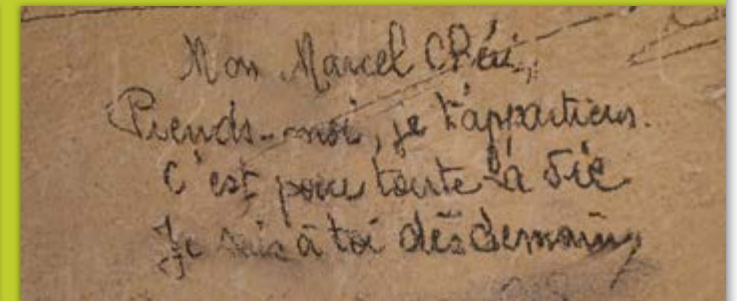 Mon Marcel Chéri,
Prends-moi, je t'appartiens.
C'est pour toute la vie
Je suis à toi dès demain,